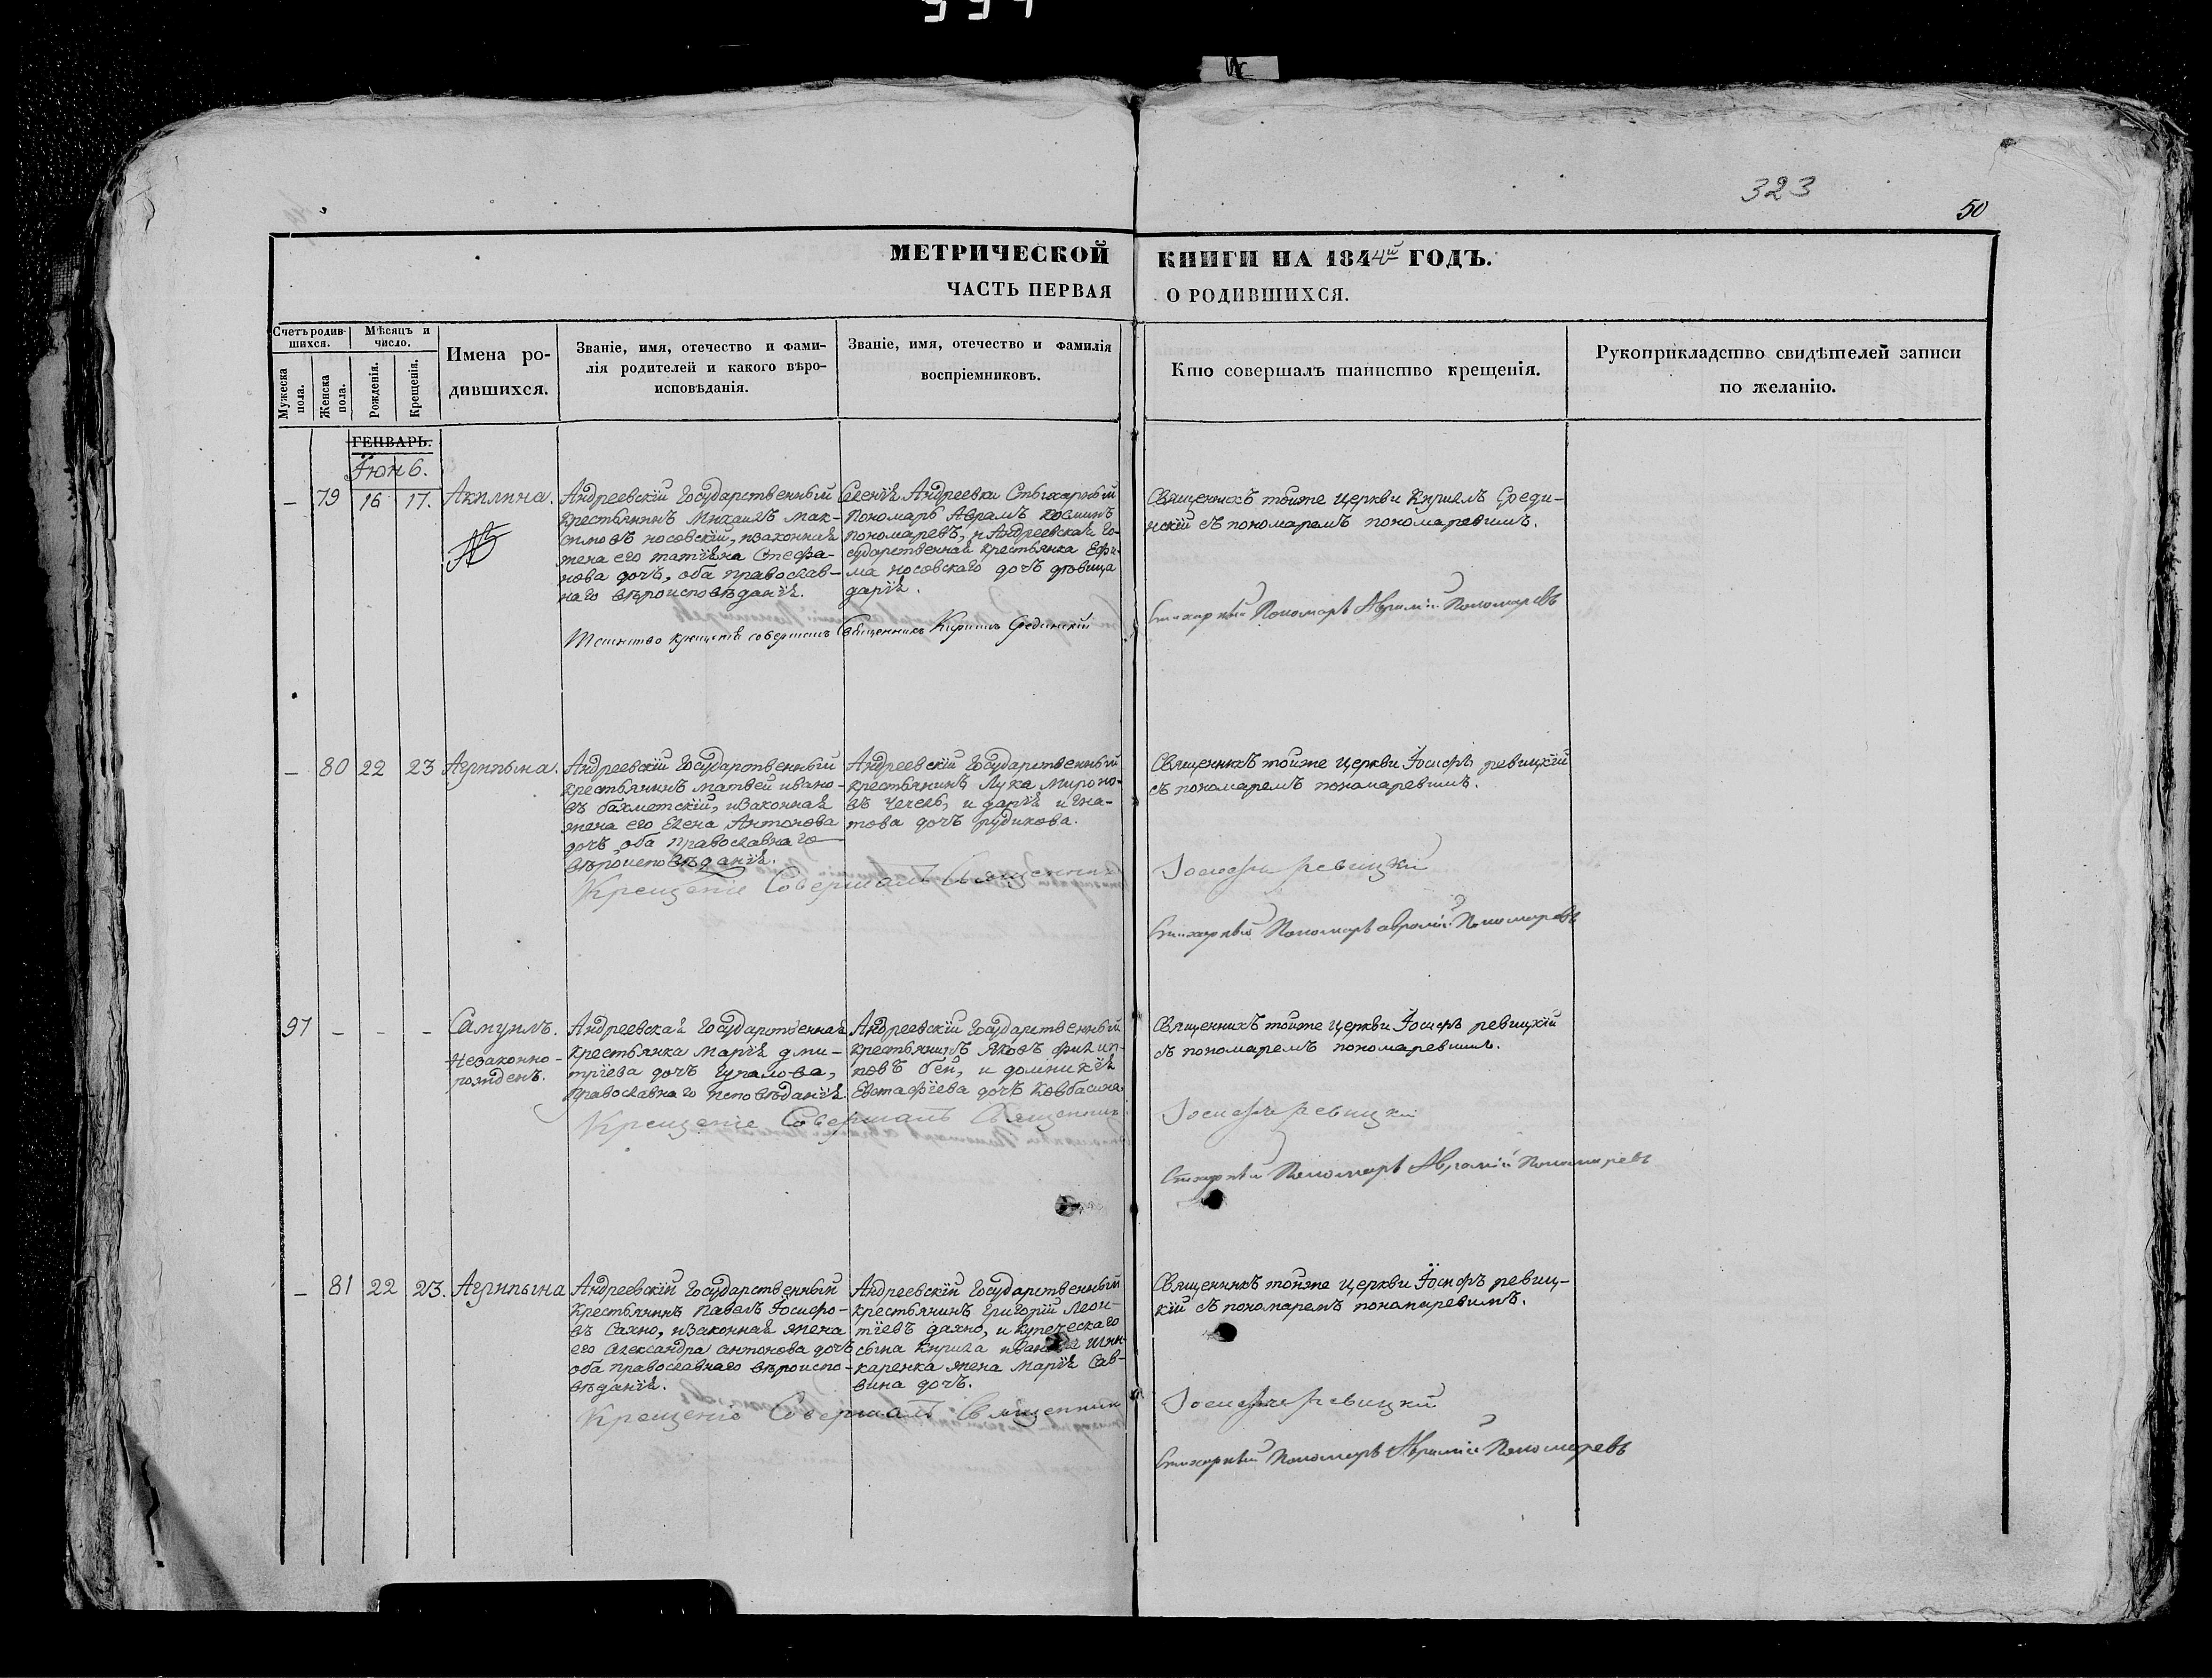 323
50
МЕТРИЧЕСКОЙ КНИГИ НА 1844й ГОДЪ.
ЧАСТЬ ПЕРВАЯ О РОДИВШИХСЯ.
Счетъ родив-
шихся.
Мужеска пола.
Женска пола.
Мѣсяцъ и
число.
Рожденія.
Крещенія.
Имена ро-
дившихся.
Званіе, имя, отечество и фами-
лія родителей и какого вѣро-
исповѣданія.
Званіе, имя, отечество и фамилія
воспріемниковъ.
Кто совершалъ таинство крещенія.
Рукоприкладство свидѣтелей записи
по желанію.
ГЕНВАРЬ.
Іюнь
– 79 16 17. Акилина.
Андреевскій Государственный
крестьянинъ Михаилъ Мак-
симовъ носовскій, изаконная
жена его татіяна Стефа-
нова дочъ, оба православ-
наго вѣроисповѣданія.
Андреевки Стыхарный
Пономарь Аврамъ Косминъ
пономаревъ, и Андреевская Го-
сударственная крестьянка Ефи-
ма носовскаго дочъ дѣвица
дарія.
Таинство крещенія совершилъ Священникъ Кириллъ Срединскій
Священникъ тойже церкви Кириллъ Среди-
нскій съ пономаремъ пономаревимъ.
Стихарный Пономарь Аврамій Пономаревъ
– 80 22 23 Агрипына.
Андреевскій Государственный
крестьянинъ матвей ивано-
въ бахметскій, изаконная
жена его Елена Антонова
дочъ, оба православнаго
вѣроисповѣданія.
Андреевскій Государственный
крестьянинъ Лука Мироно-
въ Чечель, и дарія игна-
това дочъ рудикова.
Крещеніе Совершалъ Священникъ
Священникъ тойже церкви Іосифъ ревицкій
съ пономаремъ пономаревимъ.
Іосифъ Ревицкій
Стихарный Пономарь Аврамій Пономаревъ
97 – – – Самуилъ.
Незаконно-
рожденъ.
Андреевская Государственная
крестьянка марія дми-
тріева дочъ
православнаго исповѣданія
Андреевскій Государственный
крестьянинъ Яковъ филип-
повъ бей, и домникія
Евстафіева дочъ Ковбасина
Крещеніе Совершалъ Священникъ
Священникъ тойже церкви Іосифъ ревицкій
съ пономаремъ пономаревимъ.
Іосифъ Ревицкій
Стихарный Пономарь Аврамій Пономаревъ
– 81 22 23. Агрипына
Андреевскій Государственный
крестьянинъ павелъ Іосифо-
въ Сахно, изаконная жена
его Александра антонова дочъ
оба православнаго вѣроиспо-
вѣданія.
Андреевскій Государственный
крестьянинъ григорій Леон-
тіевъ дахно, и купеческаго
сына Кирила Шин-
каренка жена Марія Сав-
вина дочъ.
Крещеніе Совершалъ Священникъ
Священникъ тойже церкви Іосифъ ревиц-
кій съ пономаремъ пономаревимъ.
Іосифъ Ревицкій
Стихарный Пономарь Аврамій Пономаревъ